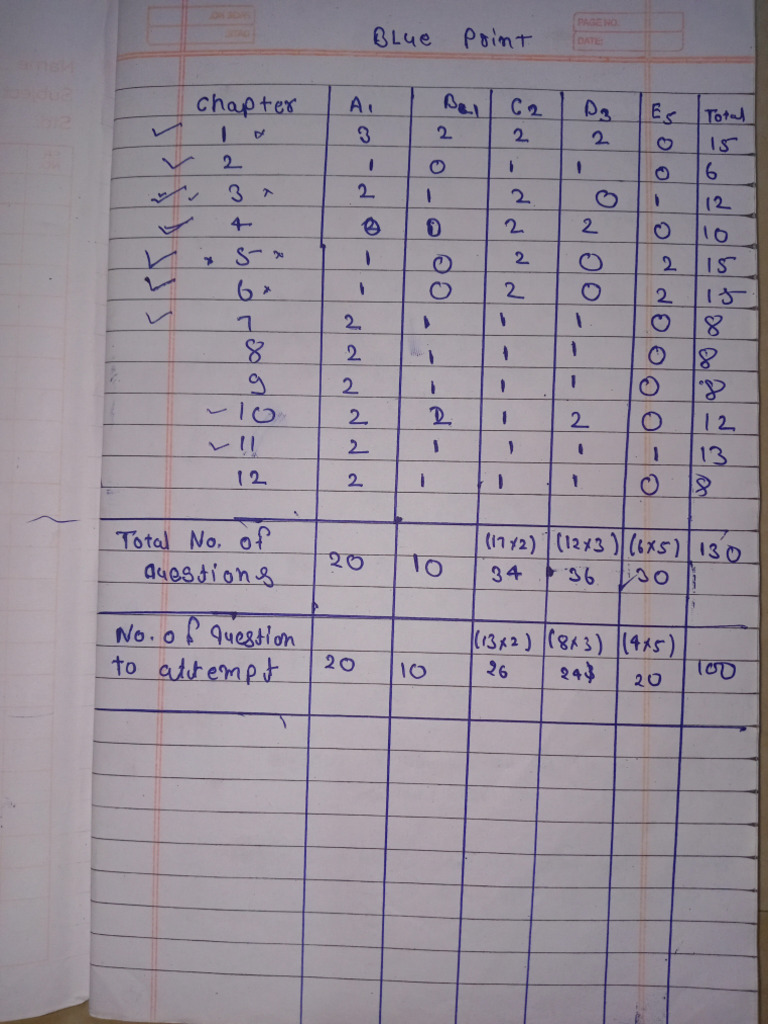 Blue Print
PAGE NO.
DATE:
Chapter A1 B1 C2 D3 E5 Total
1 3 2 2 2 0 15
2 1 0 1 1 0 6
3 2 1 2 0 1 12
4 0 0 2 2 0 10
5 1 0 2 0 2 15
6 1 0 2 0 2 15
7 2 1 1 1 0 8
8 2 1 1 1 0 8
9 2 1 1 1 0 8
10 2 2 1 2 0 12
11 2 1 1 1 1 13
12 2 1 1 1 0 8
Total No. of (17x2) (12x3) (6x5) 130
questions 20 10 34 36 30
No. of question (13x2) (8x3) (4x5)
to attempt 20 10 26 24 20 100